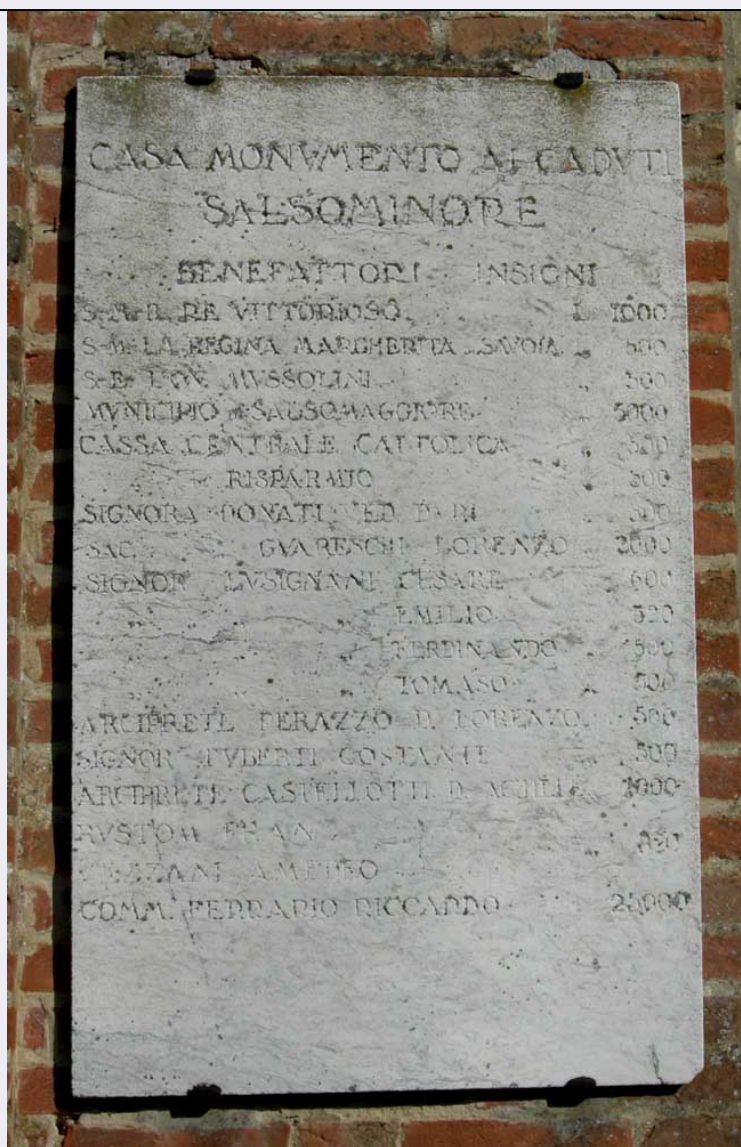 CASA MONVMENTO AI CADVTI
SALSOMINORE
BENEFATTORI INSIGNI
RE VITTORIOSO L 1000
S. M. LA REGINA MARGHERITA SAVOIA L 500
S. E. L'ON. MVSSOLINI " 500
MVNICIPIO SALSOMAGGIORE " 5000
CASSA CENTRALE CATTOLICA " 500
RISPARMIO "
SIGNORA DONATI VED " 500
SAC. GVARESCHI LORENZO 2000
SIGNOR LVSIGNANI CESARE " 600
" " EMILIO "
" " FERDINANDO " 500
" " TOMASO " 500
ARCIPRETE PERAZZO D. LORENZO 500
SIGNOR COSTANTE " 500
ARCIPRETE CASTELLOTTI D. ACHILLE 1000
AMEDEO
COMM. FERRARIO RICCARDO